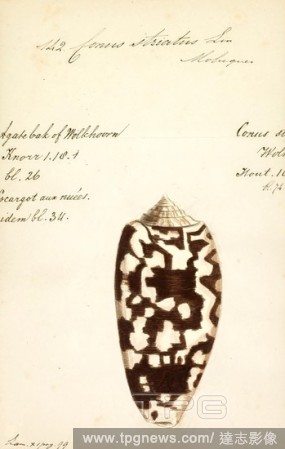 142 Conus striatus Lin
Moluques
Agatebak of Wolkhoorn
Knorr 1.18.1
bl. 26
Escargot aux nuées.
idem bl. 34.
Conus
Hout.
TPG
www.tpgnews.com/達志影像